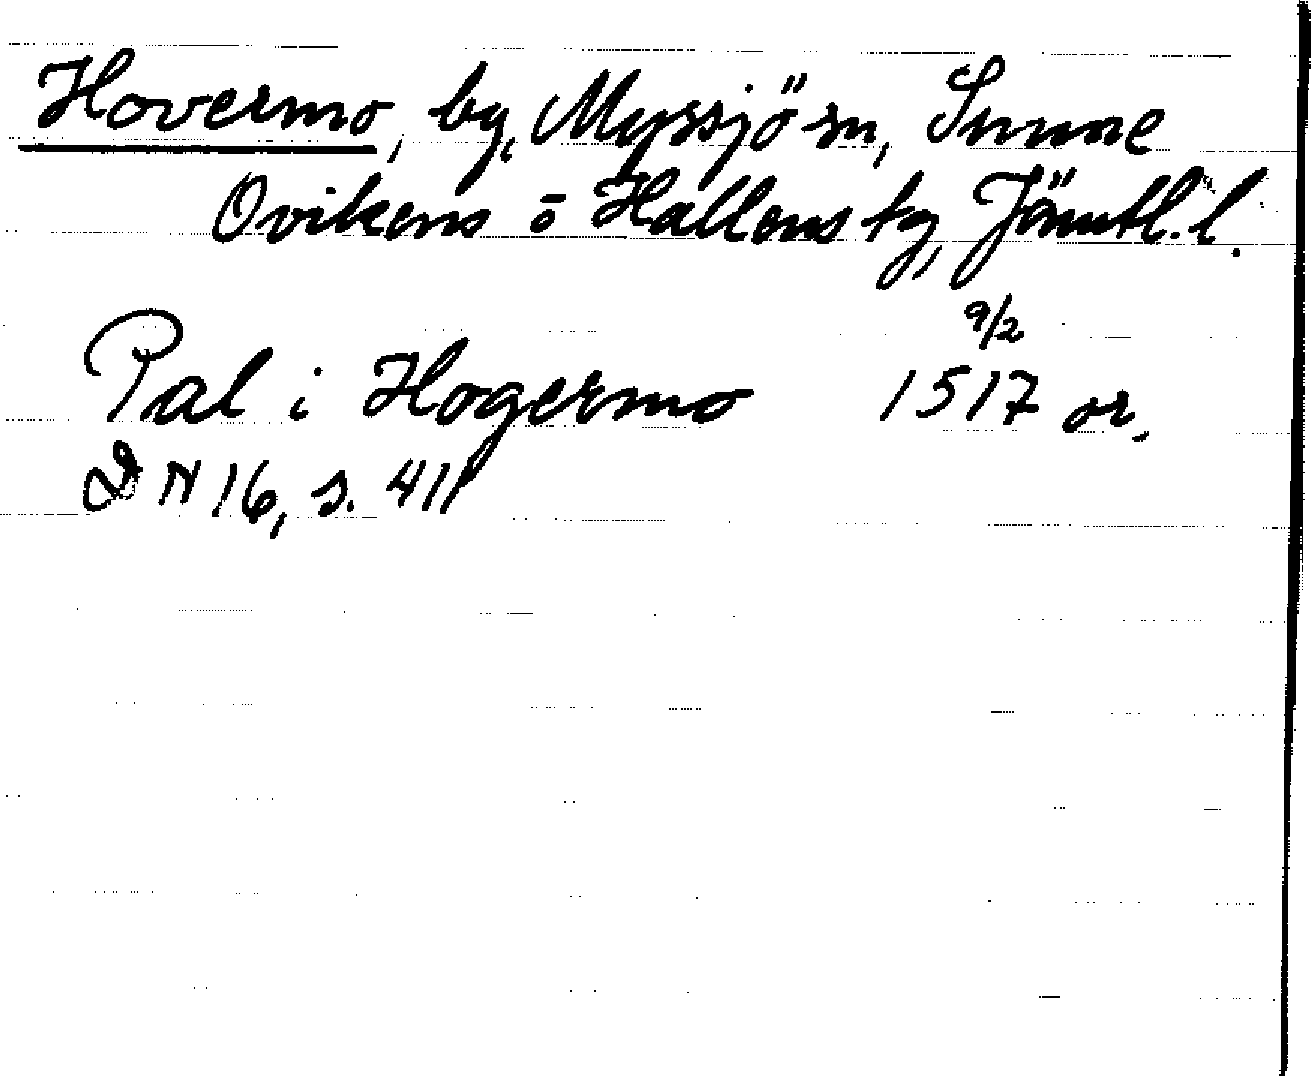 Hovermo, by, Myssjö sn, Sunne
Ovikens o Hallens tg, Jämtl. l.
9/2
Pal i Hogermo 1517 or.
DN 16, s. 411